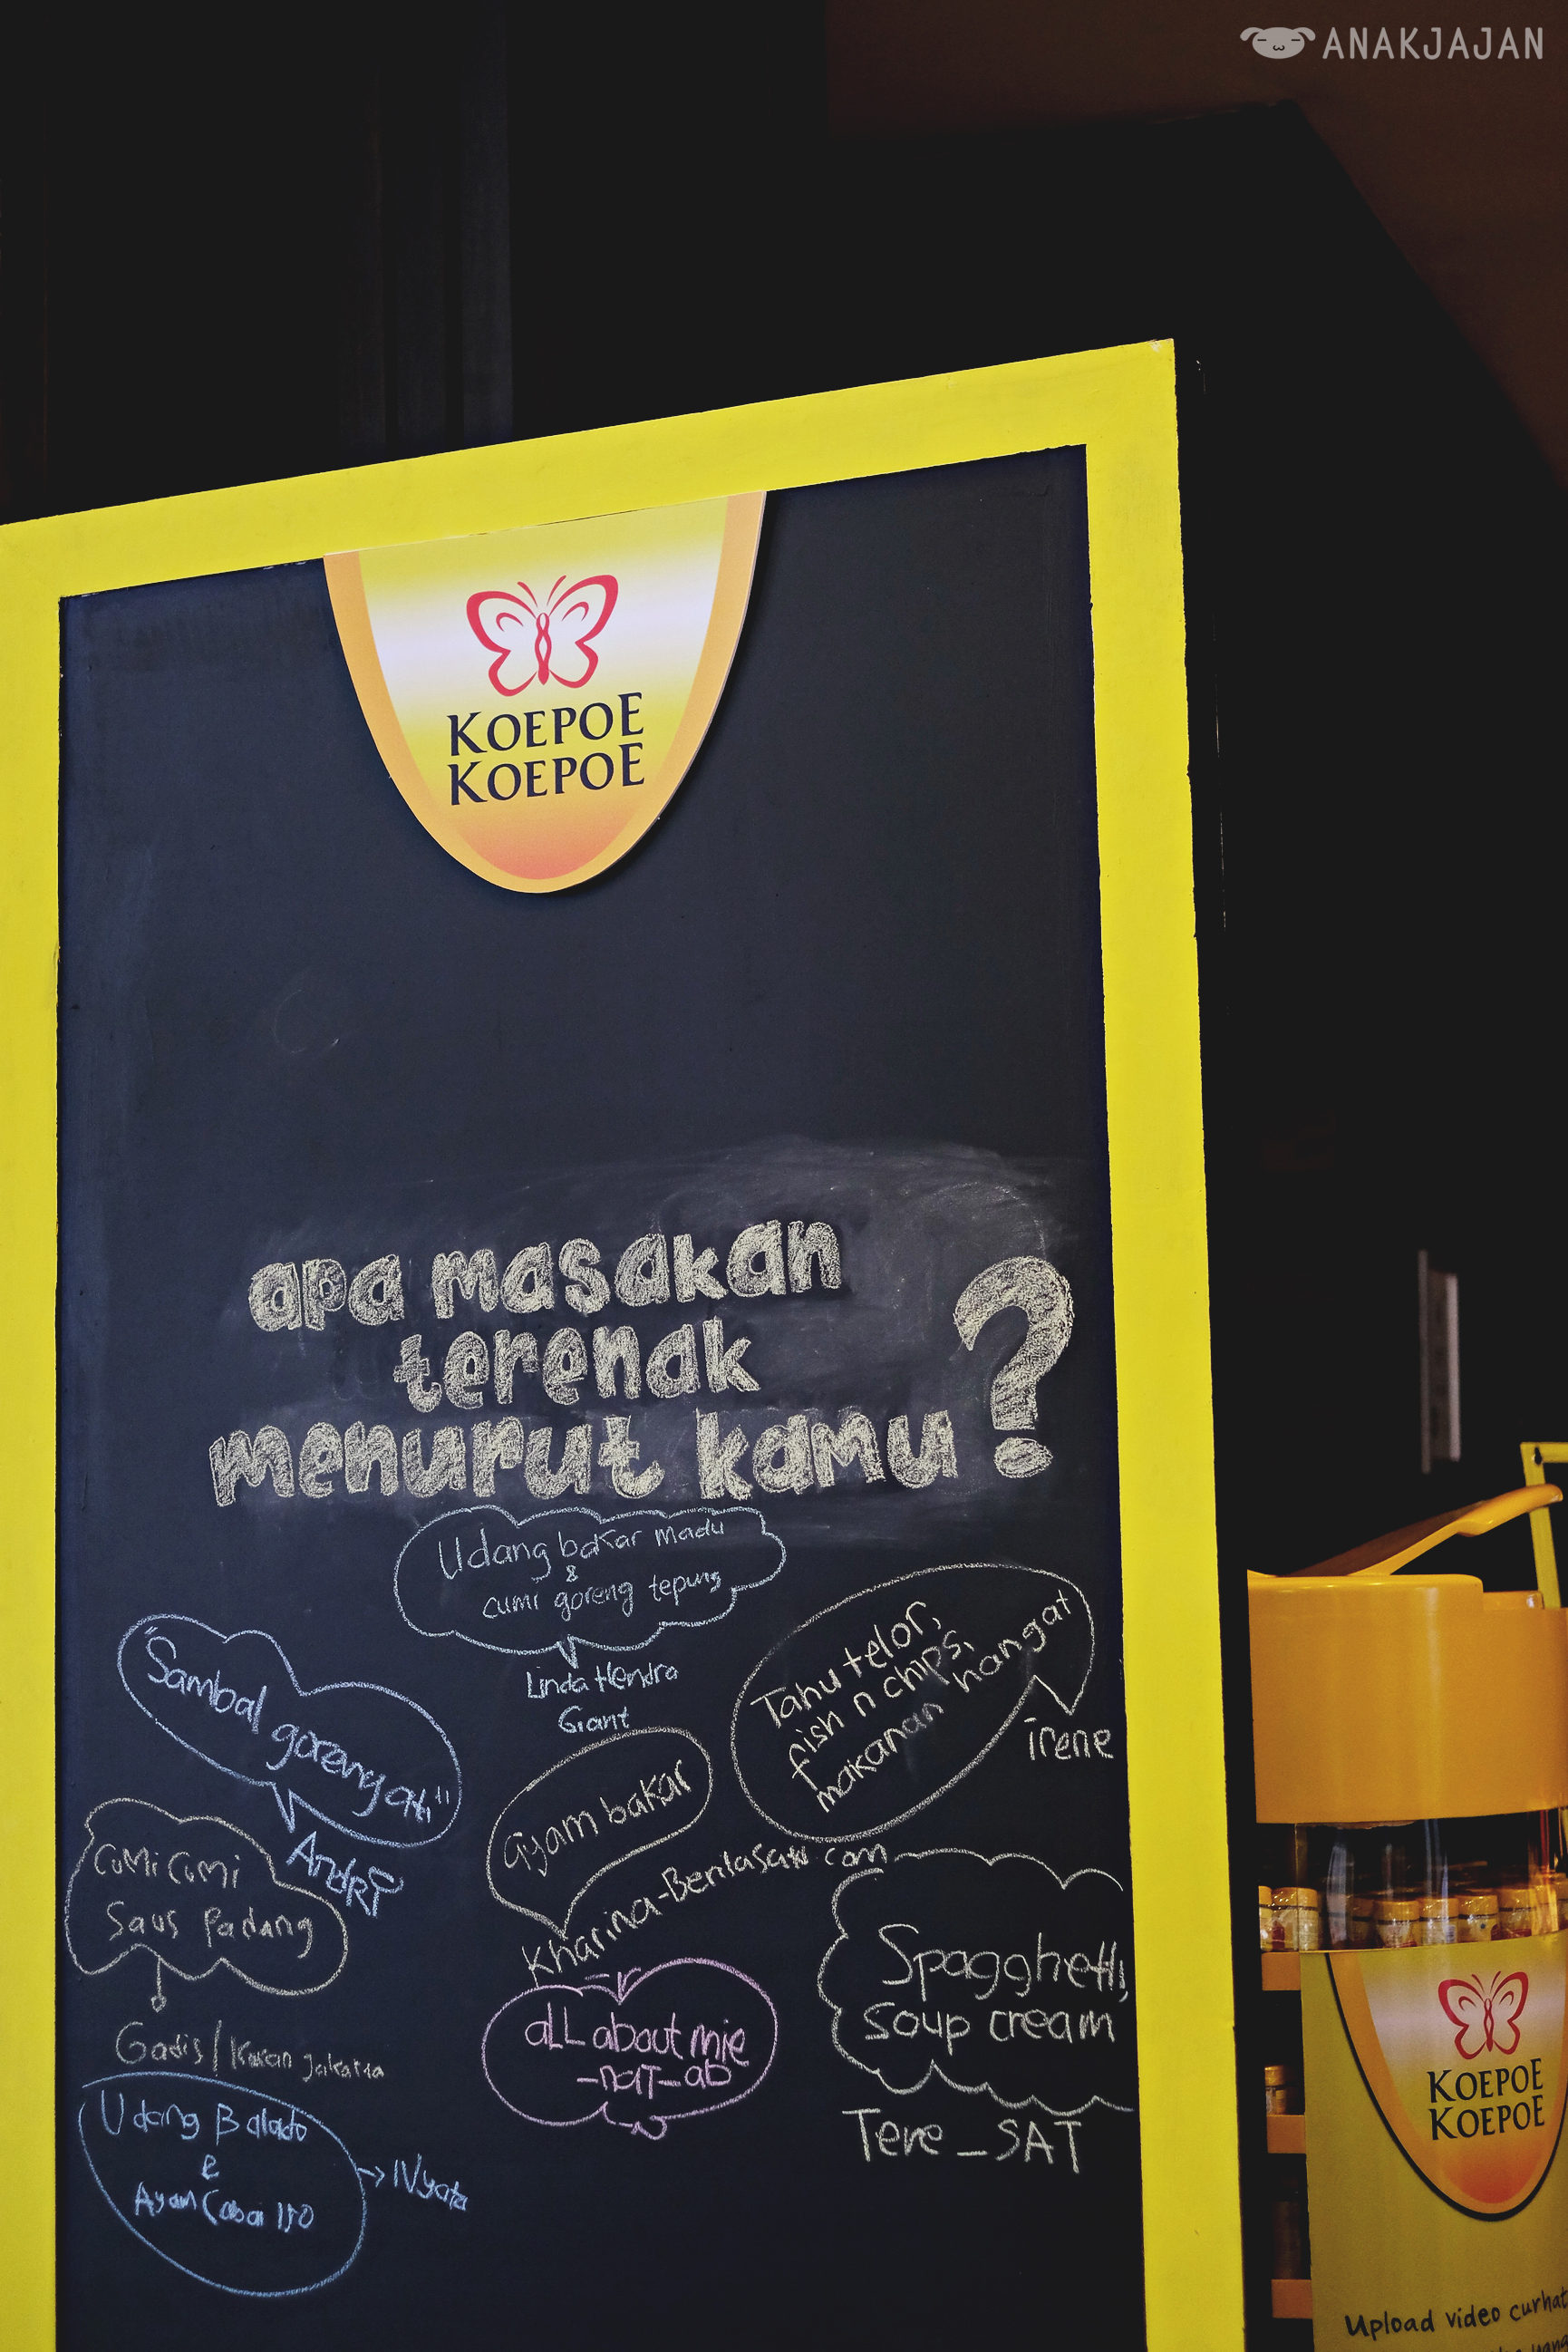 ANAKJAJAN
KOEPOE
KOEPOE
apa masakan
terenak
menurut kamu?
Udang bakar madu
&
cumi goreng tepung
Linda Hendra
Giant
"Sambal goreng ati"
Andri
Tahu telor,
fish n chips,
makanan hangat
irene
ayam bakar
Kharina-Beritasatu.com
cumi cumi
Saus Padang
Gadis/Koran Jakarta
aLL about mie
-naT-ab
Spagghetti,
soup cream
Tere_SAT
Udang Balado
&
Ayam Cabai IJO
Nyata
KOEPOE
KOEPOE
Upload video curhat